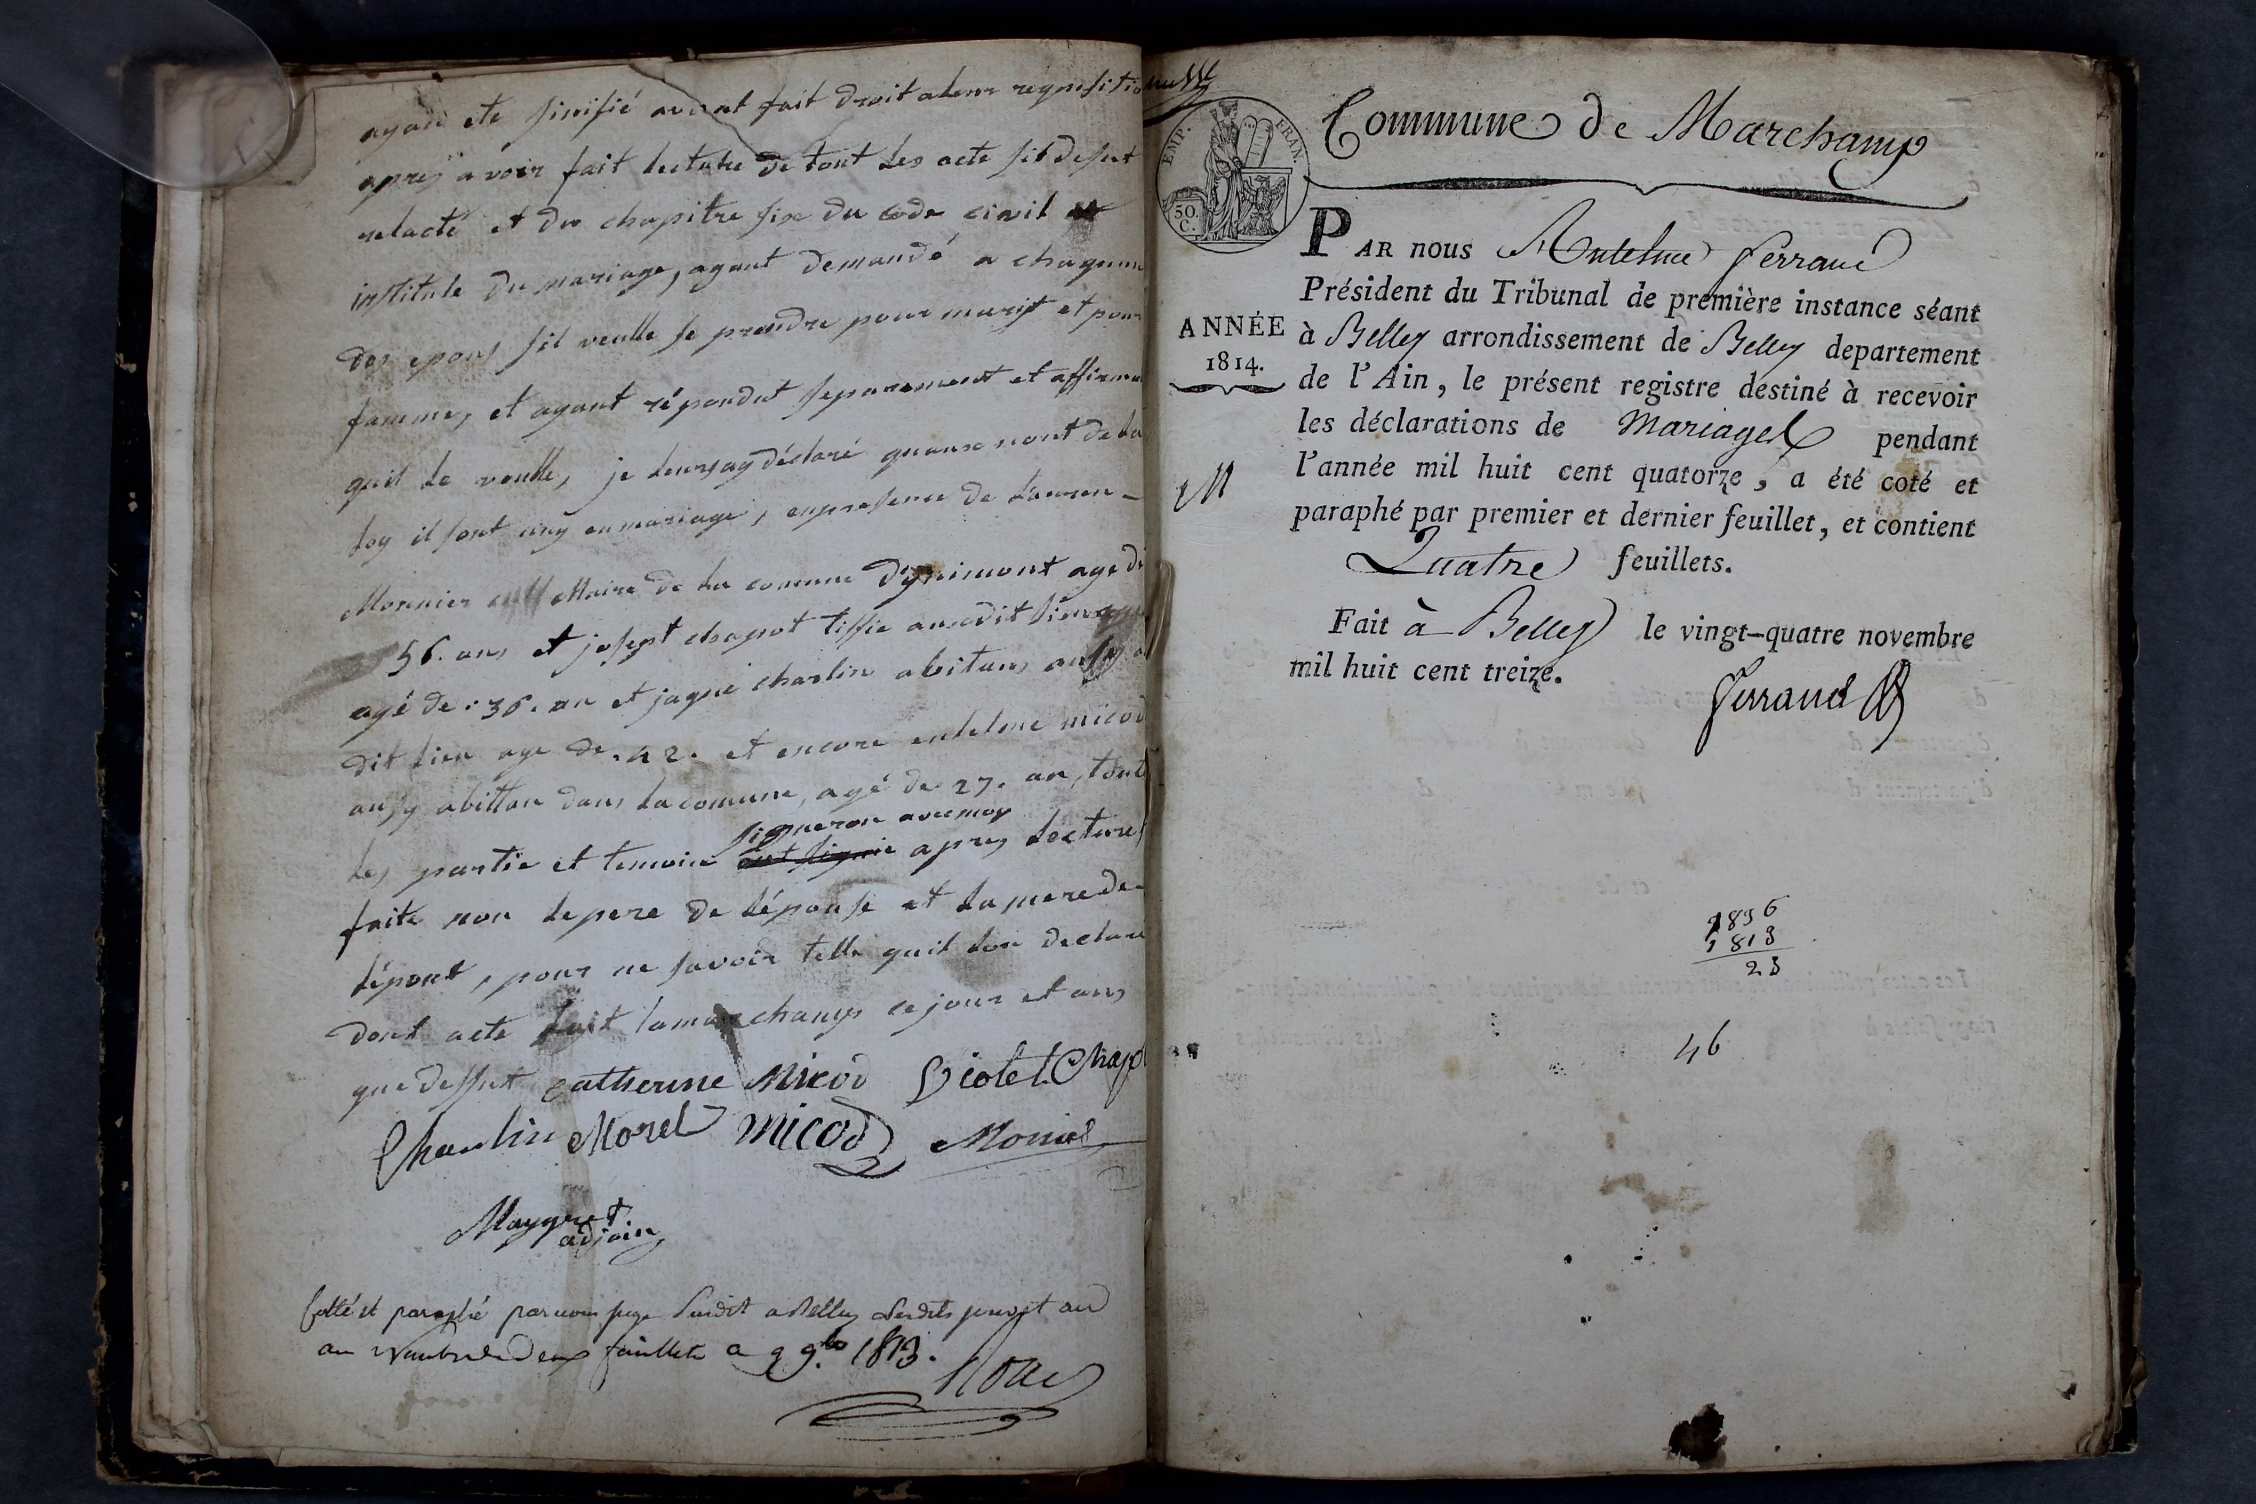 ayan ete sinifié avoient fait droit a leur requisitio
apres avoir fait lecture de tout les acte sit desut
relacté et du chapitre six du code civil
institule du mariage, ayant demandé a chaquun
des epous sil veulle se prendre pour marit et pour
famme, et ayant répondut separement et affirma
quil le veulle, je leurs ay déclaré quause nont de la
loy il sont uny en mariage, en presence de Lauren-
Monnier Maire de la comune d'ynimont age de
56. ans et josept chapot tissie audit lieu
agé de . 36 . an et jaque charlin abitans ausy a
dit lieu age de . 42 . et encore entelme micod
ausy abittan dans la comune, agé de 27. an, tout
signeron avec moy
les partie et temoin ont signé apres lecture
faite non le pere de lépouse et la mere de
lépout, pour ne savoir telle quil lon declare
dont acte fait a marchamp ce jour et ans
que dessut Catherine Micod Violet. Chapo
Charlin Morel micod Monier
Maygret
adjoin
Cotté et paraphé par nous juge Susdit a Belley
feuillets a 9 9.bre 1813.
Commune de Marchamp
EMP. FRAN.
50.
C.
PAR nous Antelme Ferrand
Président du Tribunal de première instance séant
ANNÉE
1814.
à Belley arrondissement de Belley departement
de l'Ain, le présent registre destiné à recevoir
les déclarations de Mariages pendant
l'année mil huit cent quatorze, a été coté et
M
paraphé par premier et dernier feuillet, et contient
Quatre feuillets.
Fait à Belley le vingt-quatre novembre
mil huit cent treize.
Ferrand
1836
1813
23
46